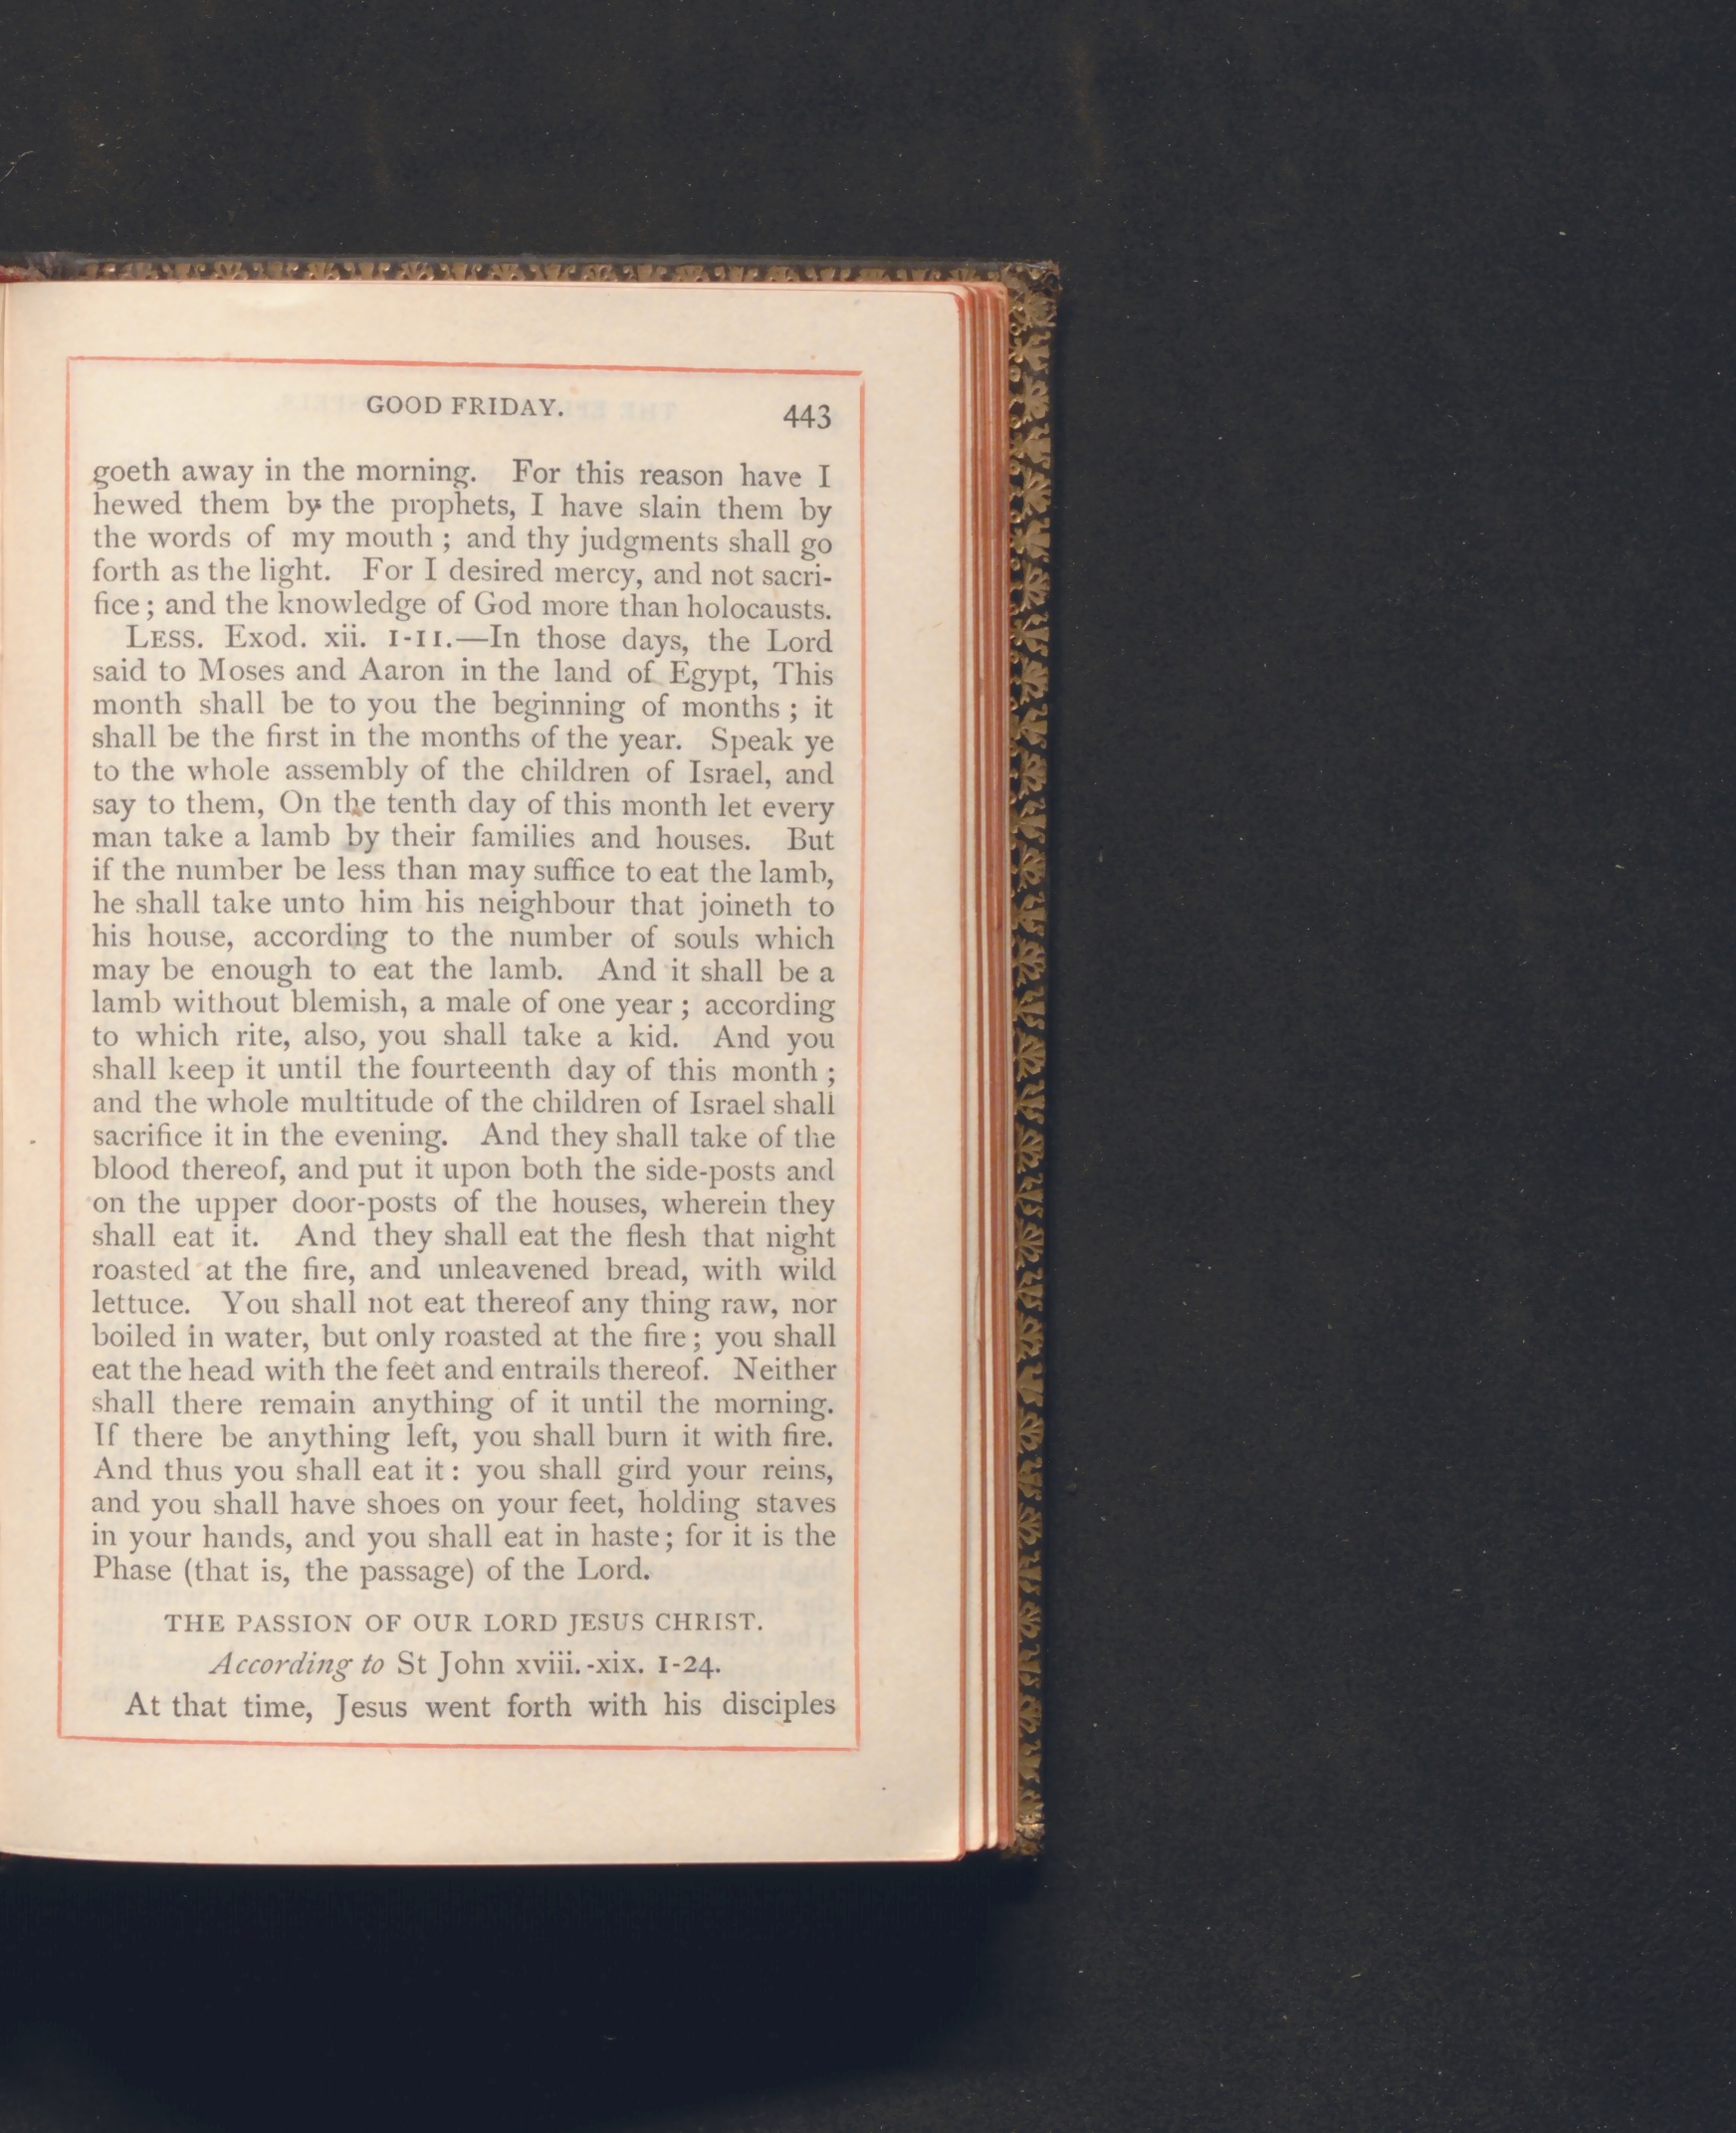 GOOD FRIDAY. 443
goeth away in the morning. For this reason have I
hewed them by the prophets, I have slain them by
the words of my mouth ; and thy judgments shall go
forth as the light. For I desired mercy, and not sacri-
fice ; and the knowledge of God more than holocausts.
LESS. Exod. xii. 1-11.—In those days, the Lord
said to Moses and Aaron in the land of Egypt, This
month shall be to you the beginning of months ; it
shall be the first in the months of the year. Speak ye
to the whole assembly of the children of Israel, and
say to them, On the tenth day of this month let every
man take a lamb by their families and houses. But
if the number be less than may suffice to eat the lamb,
he shall take unto him his neighbour that joineth to
his house, according to the number of souls which
may be enough to eat the lamb. And it shall be a
lamb without blemish, a male of one year ; according
to which rite, also, you shall take a kid. And you
shall keep it until the fourteenth day of this month ;
and the whole multitude of the children of Israel shall
sacrifice it in the evening. And they shall take of the
blood thereof, and put it upon both the side-posts and
on the upper door-posts of the houses, wherein they
shall eat it. And they shall eat the flesh that night
roasted at the fire, and unleavened bread, with wild
lettuce. You shall not eat thereof any thing raw, nor
boiled in water, but only roasted at the fire ; you shall
eat the head with the feet and entrails thereof. Neither
shall there remain anything of it until the morning.
If there be anything left, you shall burn it with fire.
And thus you shall eat it : you shall gird your reins,
and you shall have shoes on your feet, holding staves
in your hands, and you shall eat in haste ; for it is the
Phase (that is, the passage) of the Lord.
THE PASSION OF OUR LORD JESUS CHRIST.
According to St John xviii.-xix. 1-24.
At that time, Jesus went forth with his disciples